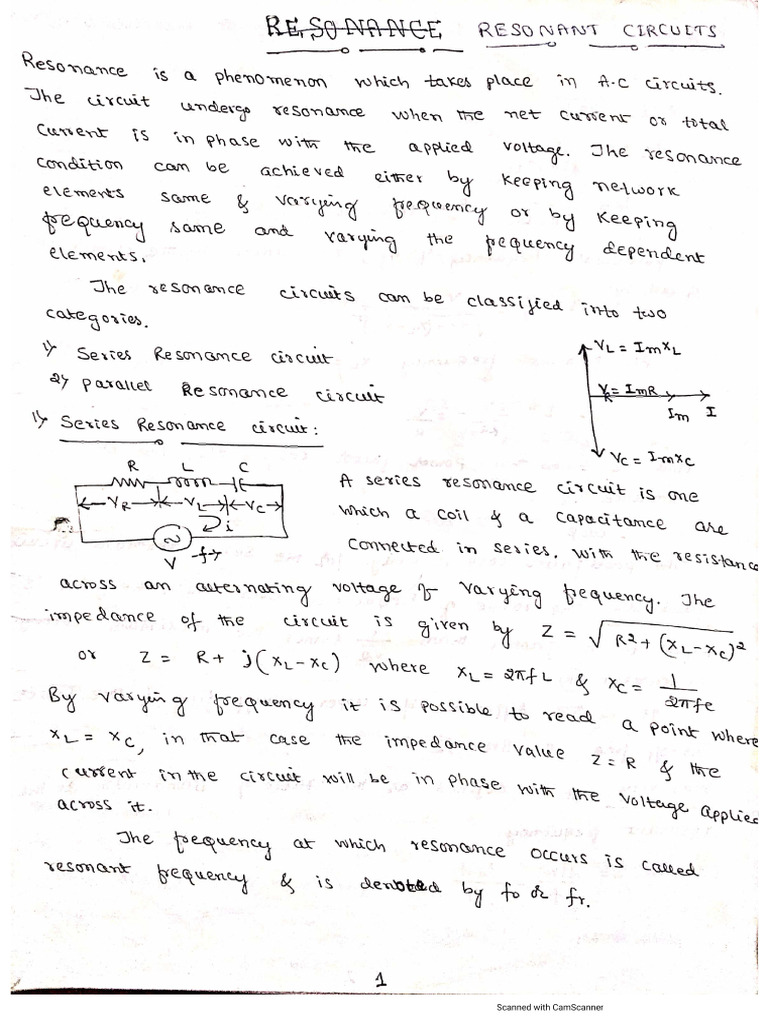 RESONANCE RESONANT CIRCUITS
Resonance is a phenomenon which takes place in A.C circuits.
The circuit undergo resonance when the net current or total
current is in phase with the applied voltage. The resonance
condition can be achieved either by keeping network
elements same & varying frequency or by keeping
frequency same and varying the frequency dependent
elements.
The resonance circuits can be classified into two
categories.
1) Series Resonance circuit
2) parallel Resonance circuit
VL = ImXL
VR = ImR
Im I
VC = ImXC
1) Series Resonance circuit:
R L C
VR VL VC
i
V f
A series resonance circuit is one
which a coil & a capacitance are
connected in series, with the resistance
across an alternating voltage of varying frequency. The
impedance of the circuit is given by Z = √R²+(XL-XC)²
or Z = R+ j(XL-XC) where XL = 2πfL & XC = 1/2πfc
By varying frequency it is possible to read a point where
XL = XC, in that case the impedance value Z=R & the
current in the circuit will be in phase with the voltage applied
across it.
The frequency at which resonance occurs is called
resonant frequency & is denoted by fo or fr.
1
Scanned with CamScanner